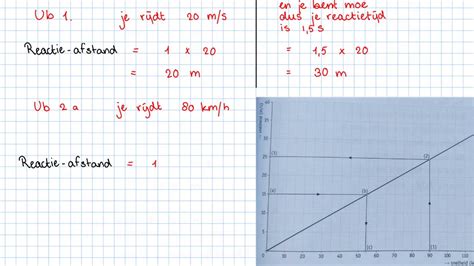 Ub 1. je rijdt 20 m/s
Reactie-afstand = 1 x 20
= 20 m
en je bent moe
dus je reactietijd
is 1,5 s
= 1,5 x 20
= 30 m
Ub 2a je rijdt 80 km/h
Reactie-afstand = 1
40
35
30
25
20
15
10
5
0
(3)
(2)
(4)
(5)
(6)
(1)
10 20 30 40 50 60 70 80 90 100 110